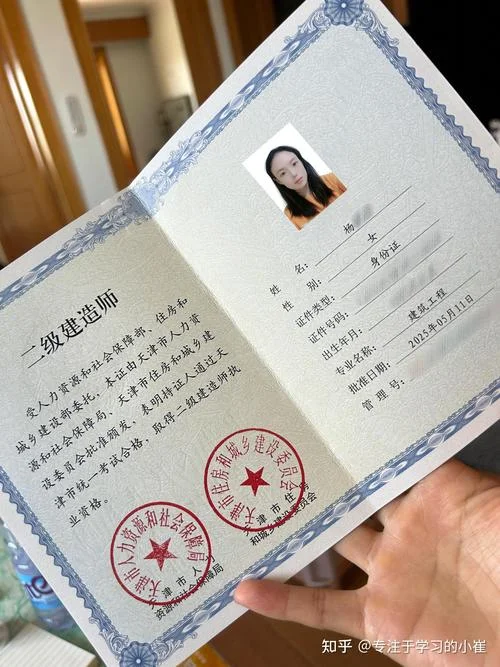 二级建造师
受人力资源和社会保障部、住房和
城乡建设部委托，本证由天津市人力资
源和社会保障局、天津市住房和城乡建
设委员会批准颁发，表明持证人通过天
津市统一考试合格，取得二级建造师执
业资格。
天津市人力资源和社会保障局
天津市人力
资源和社会保障局
天津市住房和城乡建设委员会
天津市住房
和城乡建设委员会
姓 名：杨
性 别：女
证件类型：身份证
证件号码：
出生年月：
专业名称：建筑工程
批准日期：2025年05月11日
管 理 号：
知乎 @专注于学习的小崔